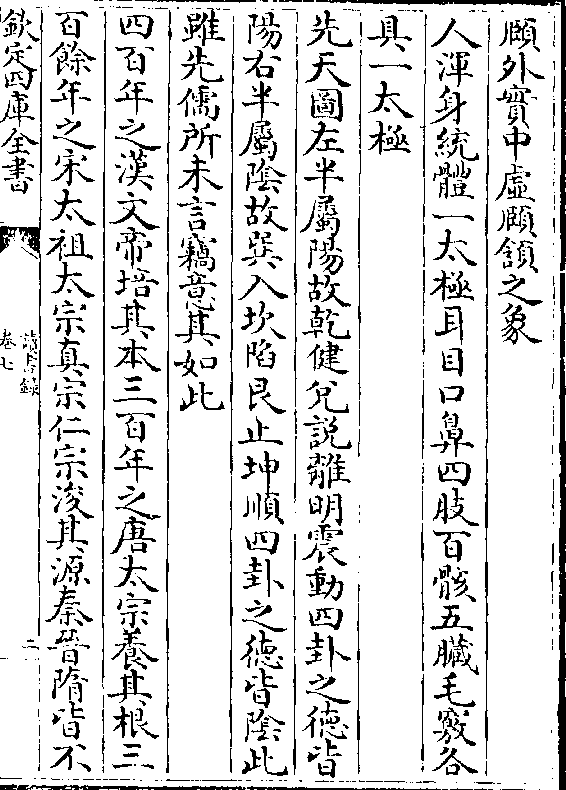 頤外實中虛頤頷之象
人渾身統體一太極耳目口鼻四肢百骸五臟毛竅各
具一太極
先天圖左半屬陽故乾健兌說離明震動四卦之德皆
陽右半屬陰故巽入坎陷艮止坤順四卦之德皆陰此
雖先儒所未言竊意其如此
四百年之漢文帝培其本三百年之唐太宗養其根三
百餘年之宋太祖太宗真宗仁宗浚其源秦晉隋皆不
欽定四庫全書
讀書錄
卷七
二